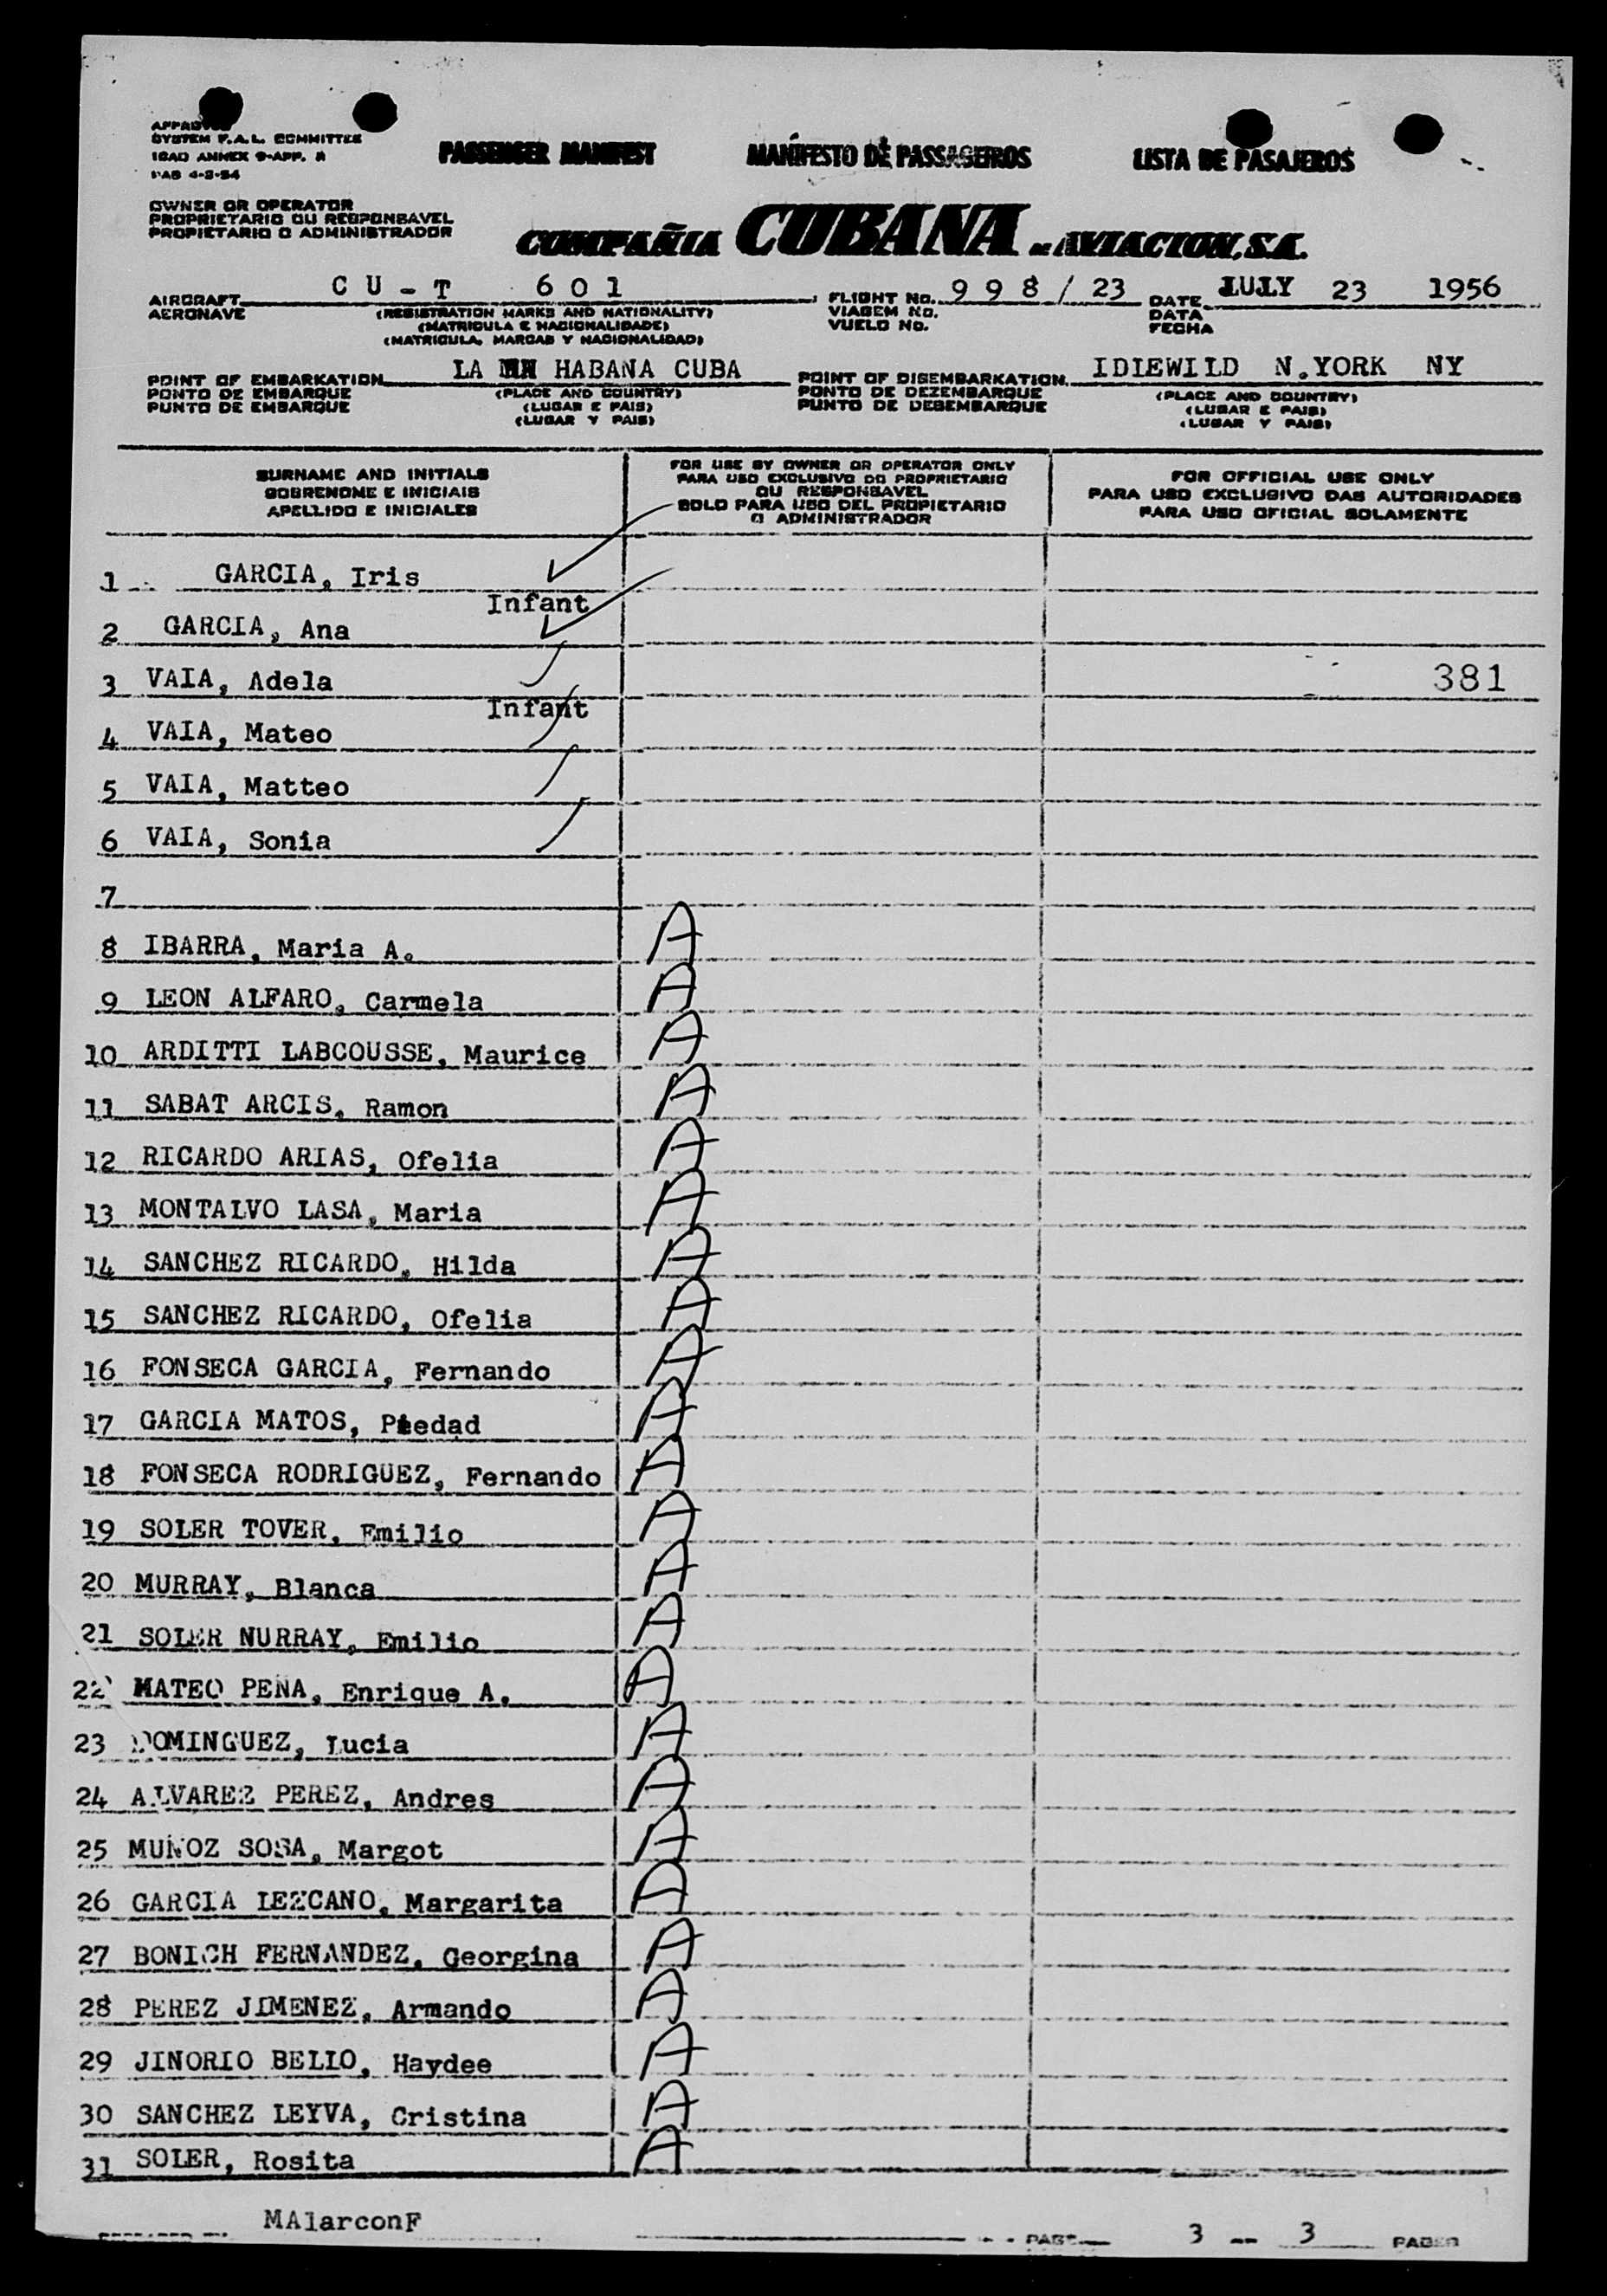 APPROVED
SYSTEM F.A.L. COMMITTEE
ICAO ANNEX 9-APP. A
4-2-54
PASSENGER MANIFEST MANIFESTO DE PASSAGEIROS LISTA DE PASAJEROS
OWNER OR OPERATOR
PROPRIETARIO OU RESPONSAVEL
PROPIETARIO O ADMINISTRADOR
COMPAÑIA CUBANA DE AVIACION, S.A.
AIRCRAFT CU-T 601 FLIGHT No. 998/23 DATE JULY 23 1956
AERONAVE (REGISTRATION MARKS AND NATIONALITY) VIAGEM No. DATA
(MATRICULA E NACIONALIDADE) VUELO No. FECHA
(MATRICULA, MARCAS Y NACIONALIDAD)
POINT OF EMBARKATION LA HABANA CUBA POINT OF DISEMBARKATION IDIEWILD N.YORK NY
PONTO DE EMBARQUE (PLACE AND COUNTRY) PONTO DE DEZEMBARQUE (PLACE AND COUNTRY)
PUNTO DE EMBARQUE (LUGAR E PAIS) PUNTO DE DESEMBARQUE (LUGAR E PAIS)
(LUGAR Y PAIS) (LUGAR Y PAIS)
SURNAME AND INITIALS
SOBRENOME E INICIAIS
APELLIDO E INICIALES
FOR USE BY OWNER OR OPERATOR ONLY
PARA USO EXCLUSIVO DO PROPRIETARIO
OU RESPONSAVEL
SOLO PARA USO DEL PROPIETARIO
O ADMINISTRADOR
FOR OFFICIAL USE ONLY
PARA USO EXCLUSIVO DAS AUTORIDADES
PARA USO OFICIAL SOLAMENTE
1 GARCIA, Iris
Infant
2 GARCIA, Ana
3 VAIA, Adela 381
Infant
4 VAIA, Mateo
5 VAIA, Matteo
6 VAIA, Sonia
7
8 IBARRA, Maria A. A
9 LEON ALFARO, Carmela A
10 ARDITTI LABCOUSSE, Maurice A
11 SABAT ARCIS, Ramon A
12 RICARDO ARIAS, Ofelia A
13 MONTALVO LASA, Maria A
14 SANCHEZ RICARDO, Hilda A
15 SANCHEZ RICARDO, Ofelia A
16 FONSECA GARCIA, Fernando A
17 GARCIA MATOS, Piedad A
18 FONSECA RODRIGUEZ, Fernando A
19 SOLER TOVER, Emilio A
20 MURRAY, Blanca A
21 SOLER NURRAY, Emilio A
22 MATEO PENA, Enrique A. A
23 DOMINGUEZ, Lucia A
24 ALVAREZ PEREZ, Andres A
25 MUÑOZ SOSA, Margot A
26 GARCIA LEZCANO, Margarita A
27 BONICH FERNANDEZ, Georgina A
28 PEREZ JIMENEZ, Armando A
29 JINORIO BELLO, Haydee A
30 SANCHEZ LEYVA, Cristina A
31 SOLER, Rosita A
MAlarconF
PAGE 3 — 3 PAGES